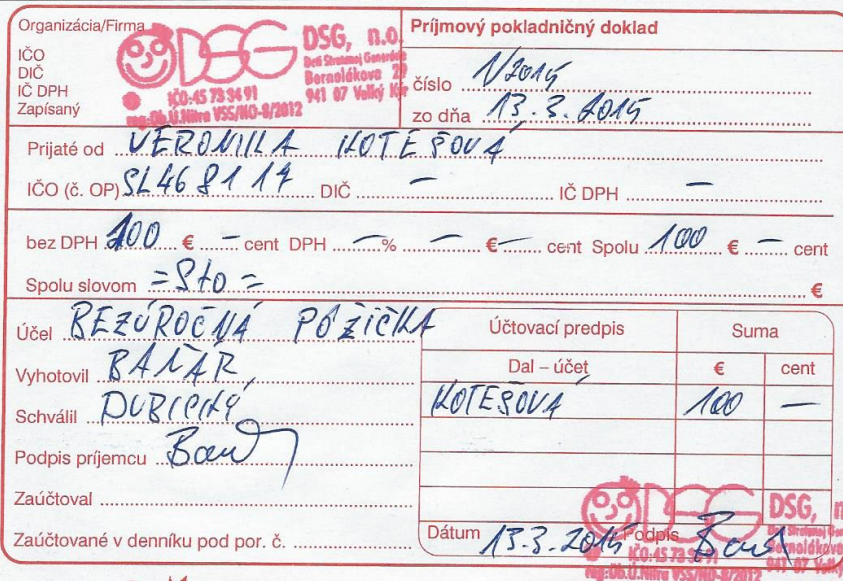 Organizácia/Firma
IČO
DIČ
IČ DPH
Zapísaný
DSG
DSG, n.o.
Deti Stratenej Generácie
Bernolákova 29
941 07 Veľký Kýr
IČO:45 73 34 91
reg:Ob.Ú.Nitra VSS/NO-8/2012
Príjmový pokladničný doklad
číslo 1/2015
zo dňa 13.3.2015
Prijaté od VERONIKA KOTEŠOVÁ
IČO (č. OP) SL468117 DIČ — IČ DPH —
bez DPH 100 € — cent DPH — % — € — cent Spolu 100 € — cent
Spolu slovom =Sto= €
Účel BEZÚROČNÁ PÔŽIČKA
Vyhotovil BAŇÁR
Schválil DUBICKÝ
Podpis príjemcu
Zaúčtoval
Zaúčtované v denníku pod por. č.
Účtovací predpis Suma
Dal – účet € cent
KOTEŠOVÁ 100 —
Dátum 13.3.2015 Podpis
DSG
DSG,
IČO:45 73 34 91
reg:Ob.Ú.Nitra VSS/NO-8/2012